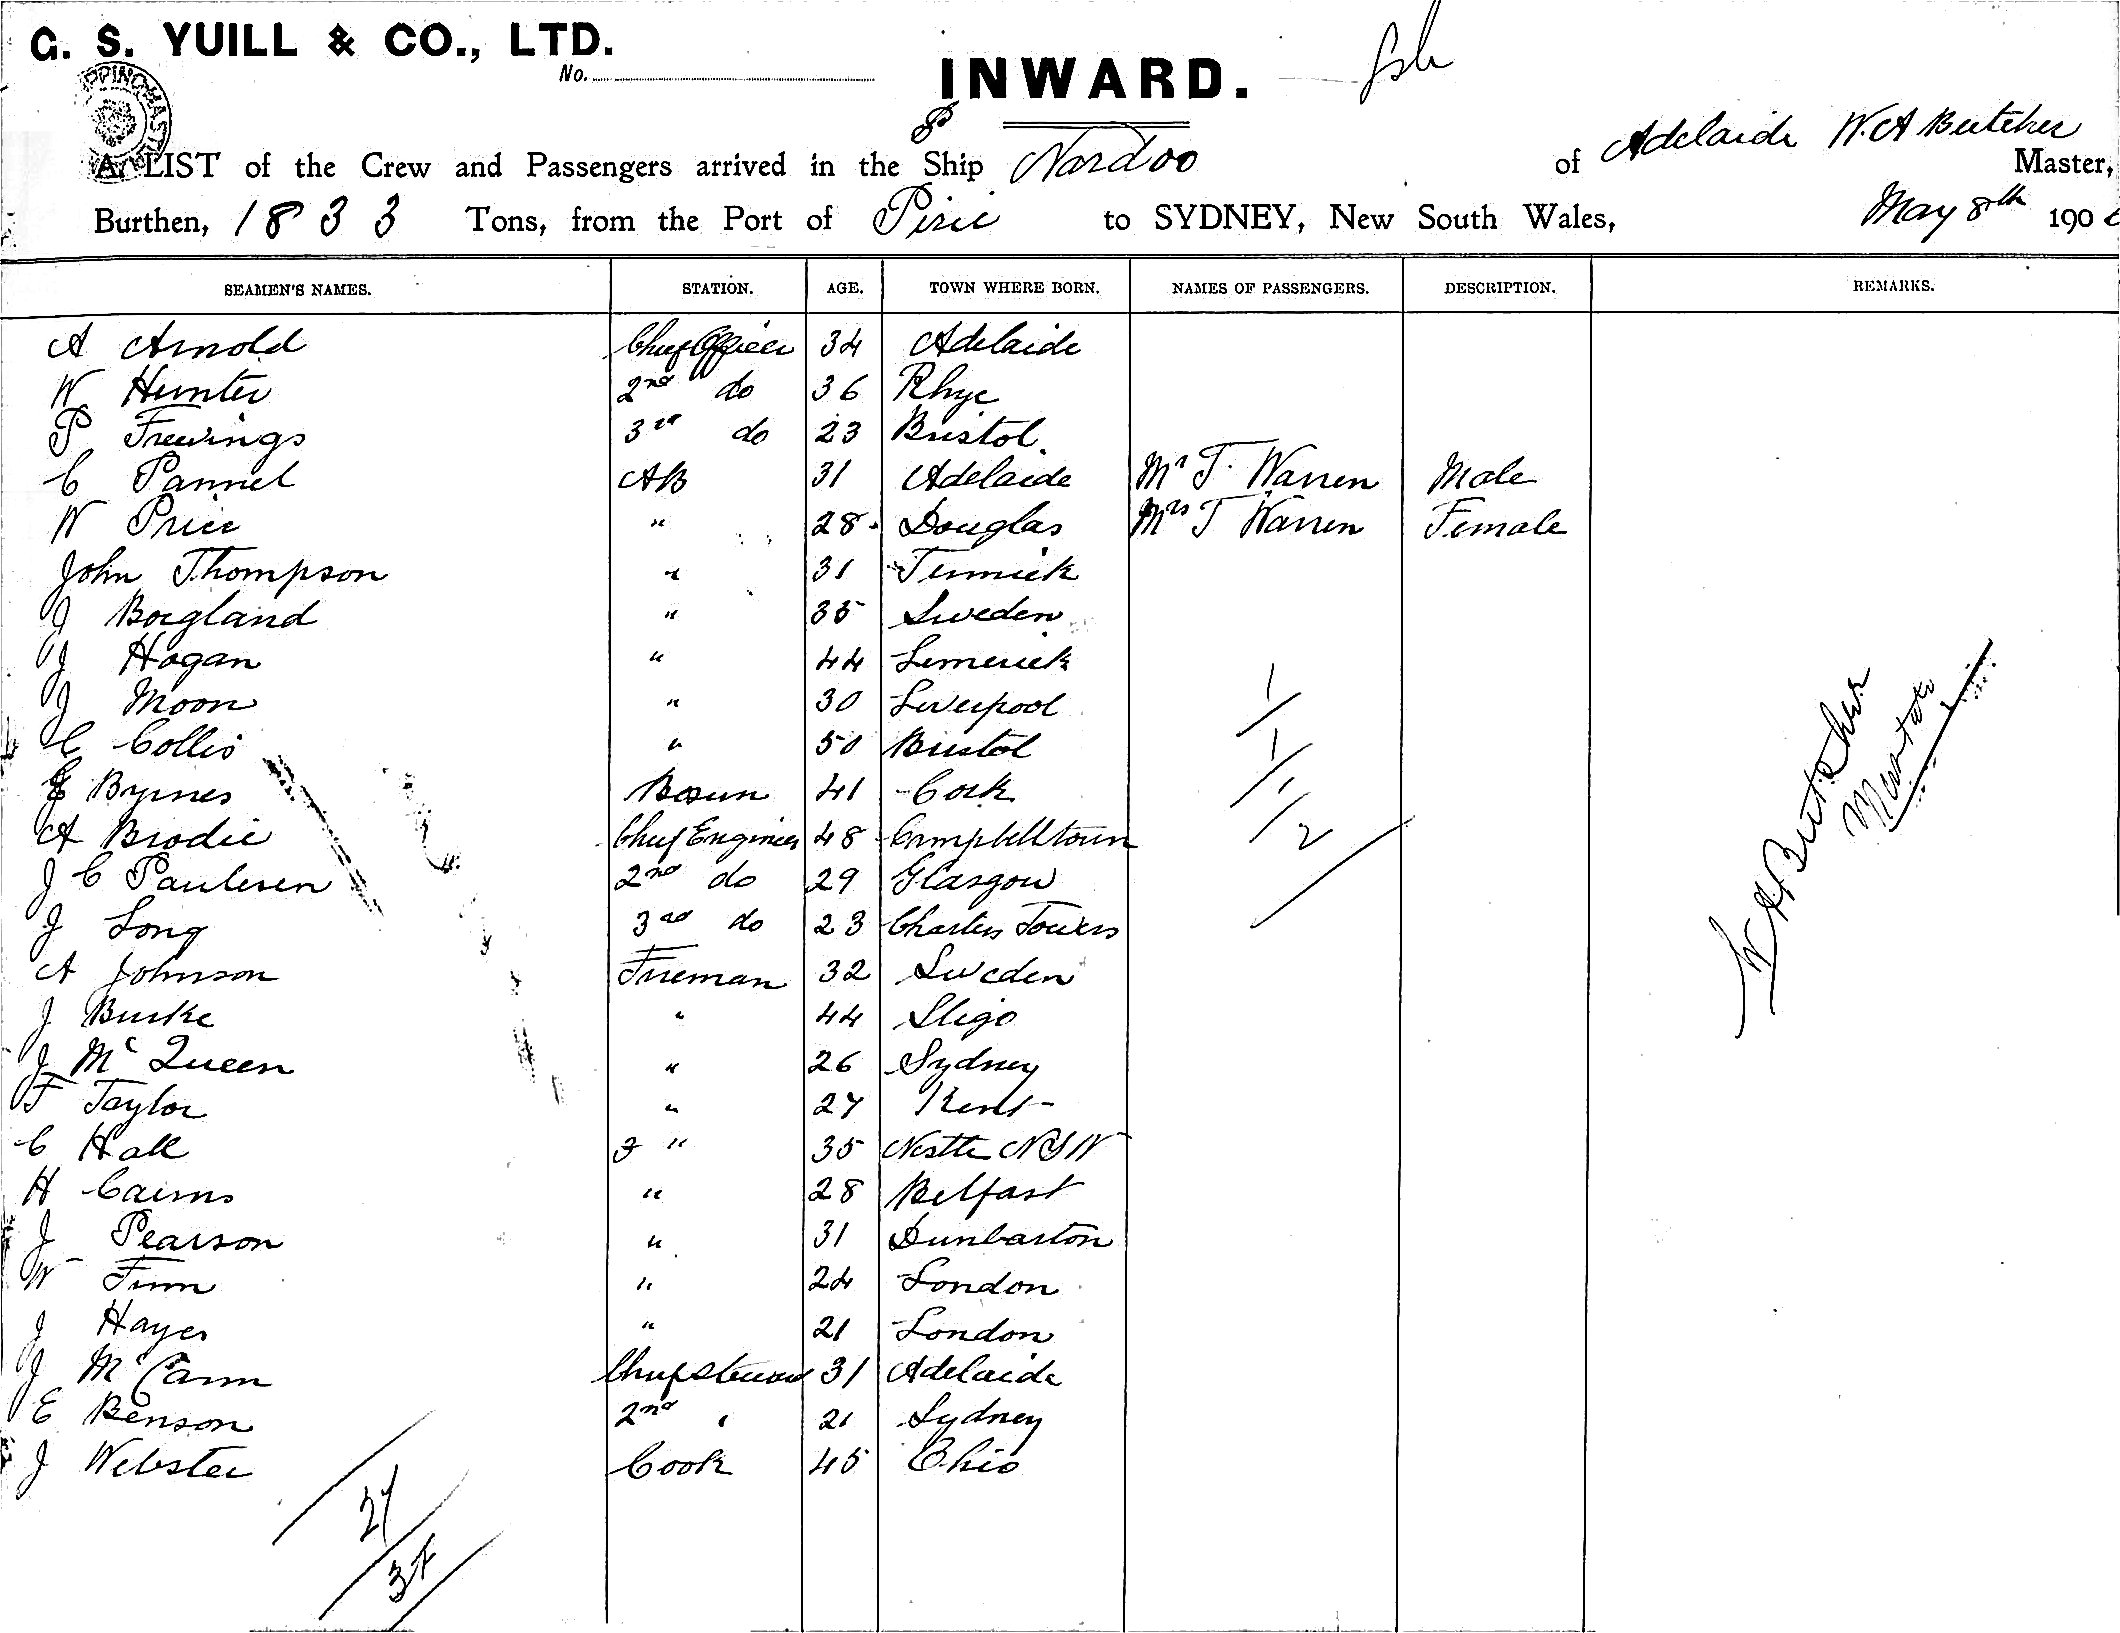 G. S. YUILL & CO., LTD.
No.
INWARD.
A LIST of the Crew and Passengers arrived in the Ship Nardoo of Adelaide W. A Butcher Master,
Burthen, 1833 Tons, from the Port of Pirie to SYDNEY, New South Wales, May 8th 190
SEAMEN'S NAMES. STATION. AGE. TOWN WHERE BORN. NAMES OF PASSENGERS. DESCRIPTION. REMARKS.
A Arnold Chief Officer 34 Adelaide
W Hunter 2nd do 36 Rhye
P Frewings 3rd do 23 Bristol
C Pannel AB 31 Adelaide Mr T. Warren Male
W Price " 28 Douglas Mrs T Warren Female
John Thompson " 31
J Borgland " 35 Sweden
J Hogan " 44 Limerick
J Moon " 30 Liverpool
C Collis " 50 Bristol
E Byrnes Bosun 41 Cork
A Brodie Chief Engineer 48 Campbelltown
J C Paulesen 2nd do 29 Glasgow
J Long 3rd do 23 Charters Towers
A Johnson Fireman 32 Sweden
J Burke " 44 Sligo
J McQueen " 26 Sydney
F Taylor " 27 Kent
C Hall " 35 Nstle NSW
H Cairns " 28 Belfast
J Pearson " 31 Dunbarton
W Finn " 24 London
J Hayes " 21 London
J McCann Chief Steward 31 Adelaide
E Benson 2nd " 21 Sydney
J Webster Cook 45 Ohio
1
1/1
1/2
W A Butcher
Master